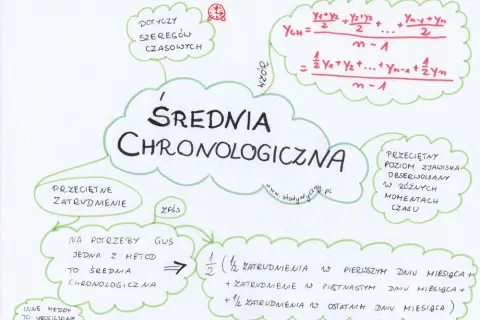 DOTYCZY
SZEREGÓW
CZASOWYCH
WZÓR
yCH = (y1+y2)/2 + (y2+y3)/2 + ... + (yn-1+yn)/2 / n-1
= ½y1 + y2 + ... + yn-1 + ½yn / n-1
ŚREDNIA
CHRONOLOGICZNA
www.statystyczny.pl
PRZECIĘTNY
POZIOM ZJAWISKA
OBSERWOWANY
W RÓŻNYCH
MOMENTACH
CZASU
PRZECIĘTNE
ZATRUDNIENIE
NA POTRZEBY GUS
JEDNĄ Z METOD
TO ŚREDNIA
CHRONOLOGICZNA
⇒
½ (½ ZATRUDNIENIA W PIERWSZYM DNIU MIESIĄCA +
+ ZATRUDNIENIE W PIĘTNASTYM DNIU MIESIĄCA +
+ ½ ZATRUDNIENIA W OSTATNIM DNIU MIESIĄCA)
INNE METODY